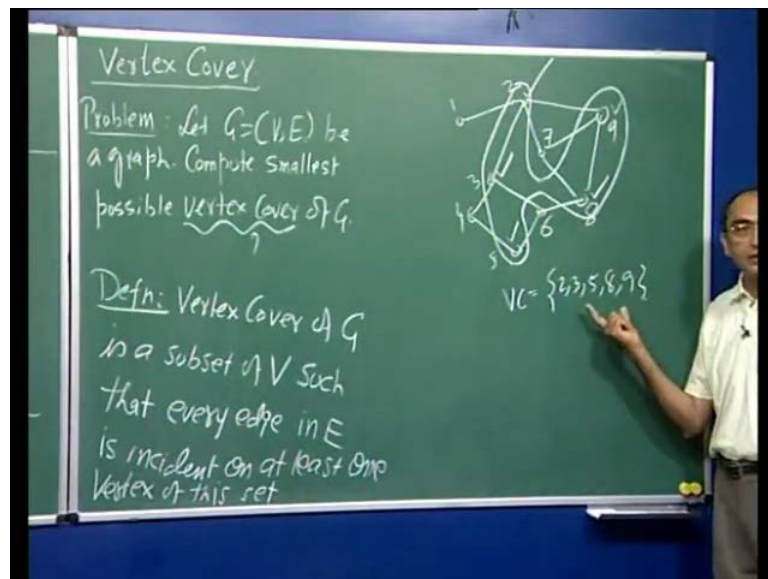 Vertex Cover
Problem: Let G=(V,E) be
a graph. Compute smallest
possible vertex cover of G.
?
Defn: Vertex Cover of G
is a subset of V such
that every edge in E
is incident on at least one
Vertex of this set
1
2
9
7
3
4
6
8
5
VC = {2,3,5,8,9}